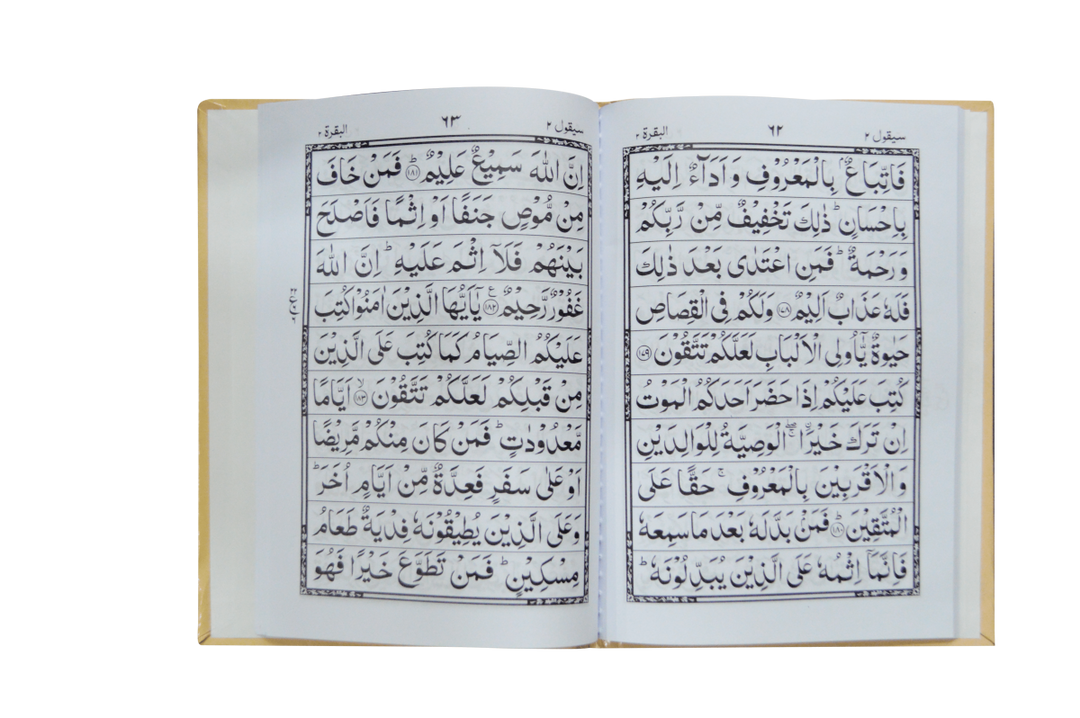 سيقول ٢ ٦٢ البقرة ٢
فَاتِّبَاعٌۢ بِالْمَعْرُوْفِ وَاَدَآءٌ اِلَيْهِ
بِاِحْسَانٍ ؕ ذٰلِكَ تَخْفِيْفٌ مِّنْ رَّبِّكُمْ
وَرَحْمَةٌ ؕ فَمَنِ اعْتَدٰى بَعْدَ ذٰلِكَ
فَلَهٗ عَذَابٌ اَلِيْمٌ ﴿١٧٨﴾ وَلَكُمْ فِى الْقِصَاصِ
حَيٰوةٌ يّٰۤاُولِى الْاَلْبَابِ لَعَلَّكُمْ تَتَّقُوْنَ ﴿١٧٩﴾
كُتِبَ عَلَيْكُمْ اِذَا حَضَرَ اَحَدَكُمُ الْمَوْتُ
اِنْ تَرَكَ خَيْرًا ۖۚ الْوَصِيَّةُ لِلْوَالِدَيْنِ
وَالْاَقْرَبِيْنَ بِالْمَعْرُوْفِ ۚ حَقًّا عَلَى
الْمُتَّقِيْنَ ؕ ﴿١٨٠﴾ فَمَنْۢ بَدَّلَهٗ بَعْدَ مَا سَمِعَهٗ
فَاِنَّمَاۤ اِثْمُهٗ عَلَى الَّذِيْنَ يُبَدِّلُوْنَهٗ ؕ
سيقول ٢ ٦٣ البقرة ٢
اِنَّ اللّٰهَ سَمِيْعٌ عَلِيْمٌ ؕ ﴿١٨١﴾ فَمَنْ خَافَ
مِنْ مُّوْصٍ جَنَفًا اَوْ اِثْمًا فَاَصْلَحَ
بَيْنَهُمْ فَلَاۤ اِثْمَ عَلَيْهِ ؕ اِنَّ اللّٰهَ
غَفُوْرٌ رَّحِيْمٌ ﴿١٨٢﴾ ع يٰۤاَيُّهَا الَّذِيْنَ اٰمَنُوْا كُتِبَ
عَلَيْكُمُ الصِّيَامُ كَمَا كُتِبَ عَلَى الَّذِيْنَ
مِنْ قَبْلِكُمْ لَعَلَّكُمْ تَتَّقُوْنَ ۙ ﴿١٨٣﴾ اَيَّامًا
مَّعْدُوْدٰتٍ ؕ فَمَنْ كَانَ مِنْكُمْ مَّرِيْضًا
اَوْ عَلٰى سَفَرٍ فَعِدَّةٌ مِّنْ اَيَّامٍ اُخَرَ ؕ
وَعَلَى الَّذِيْنَ يُطِيْقُوْنَهٗ فِدْيَةٌ طَعَامُ
مِسْكِيْنٍ ؕ فَمَنْ تَطَوَّعَ خَيْرًا فَهُوَ